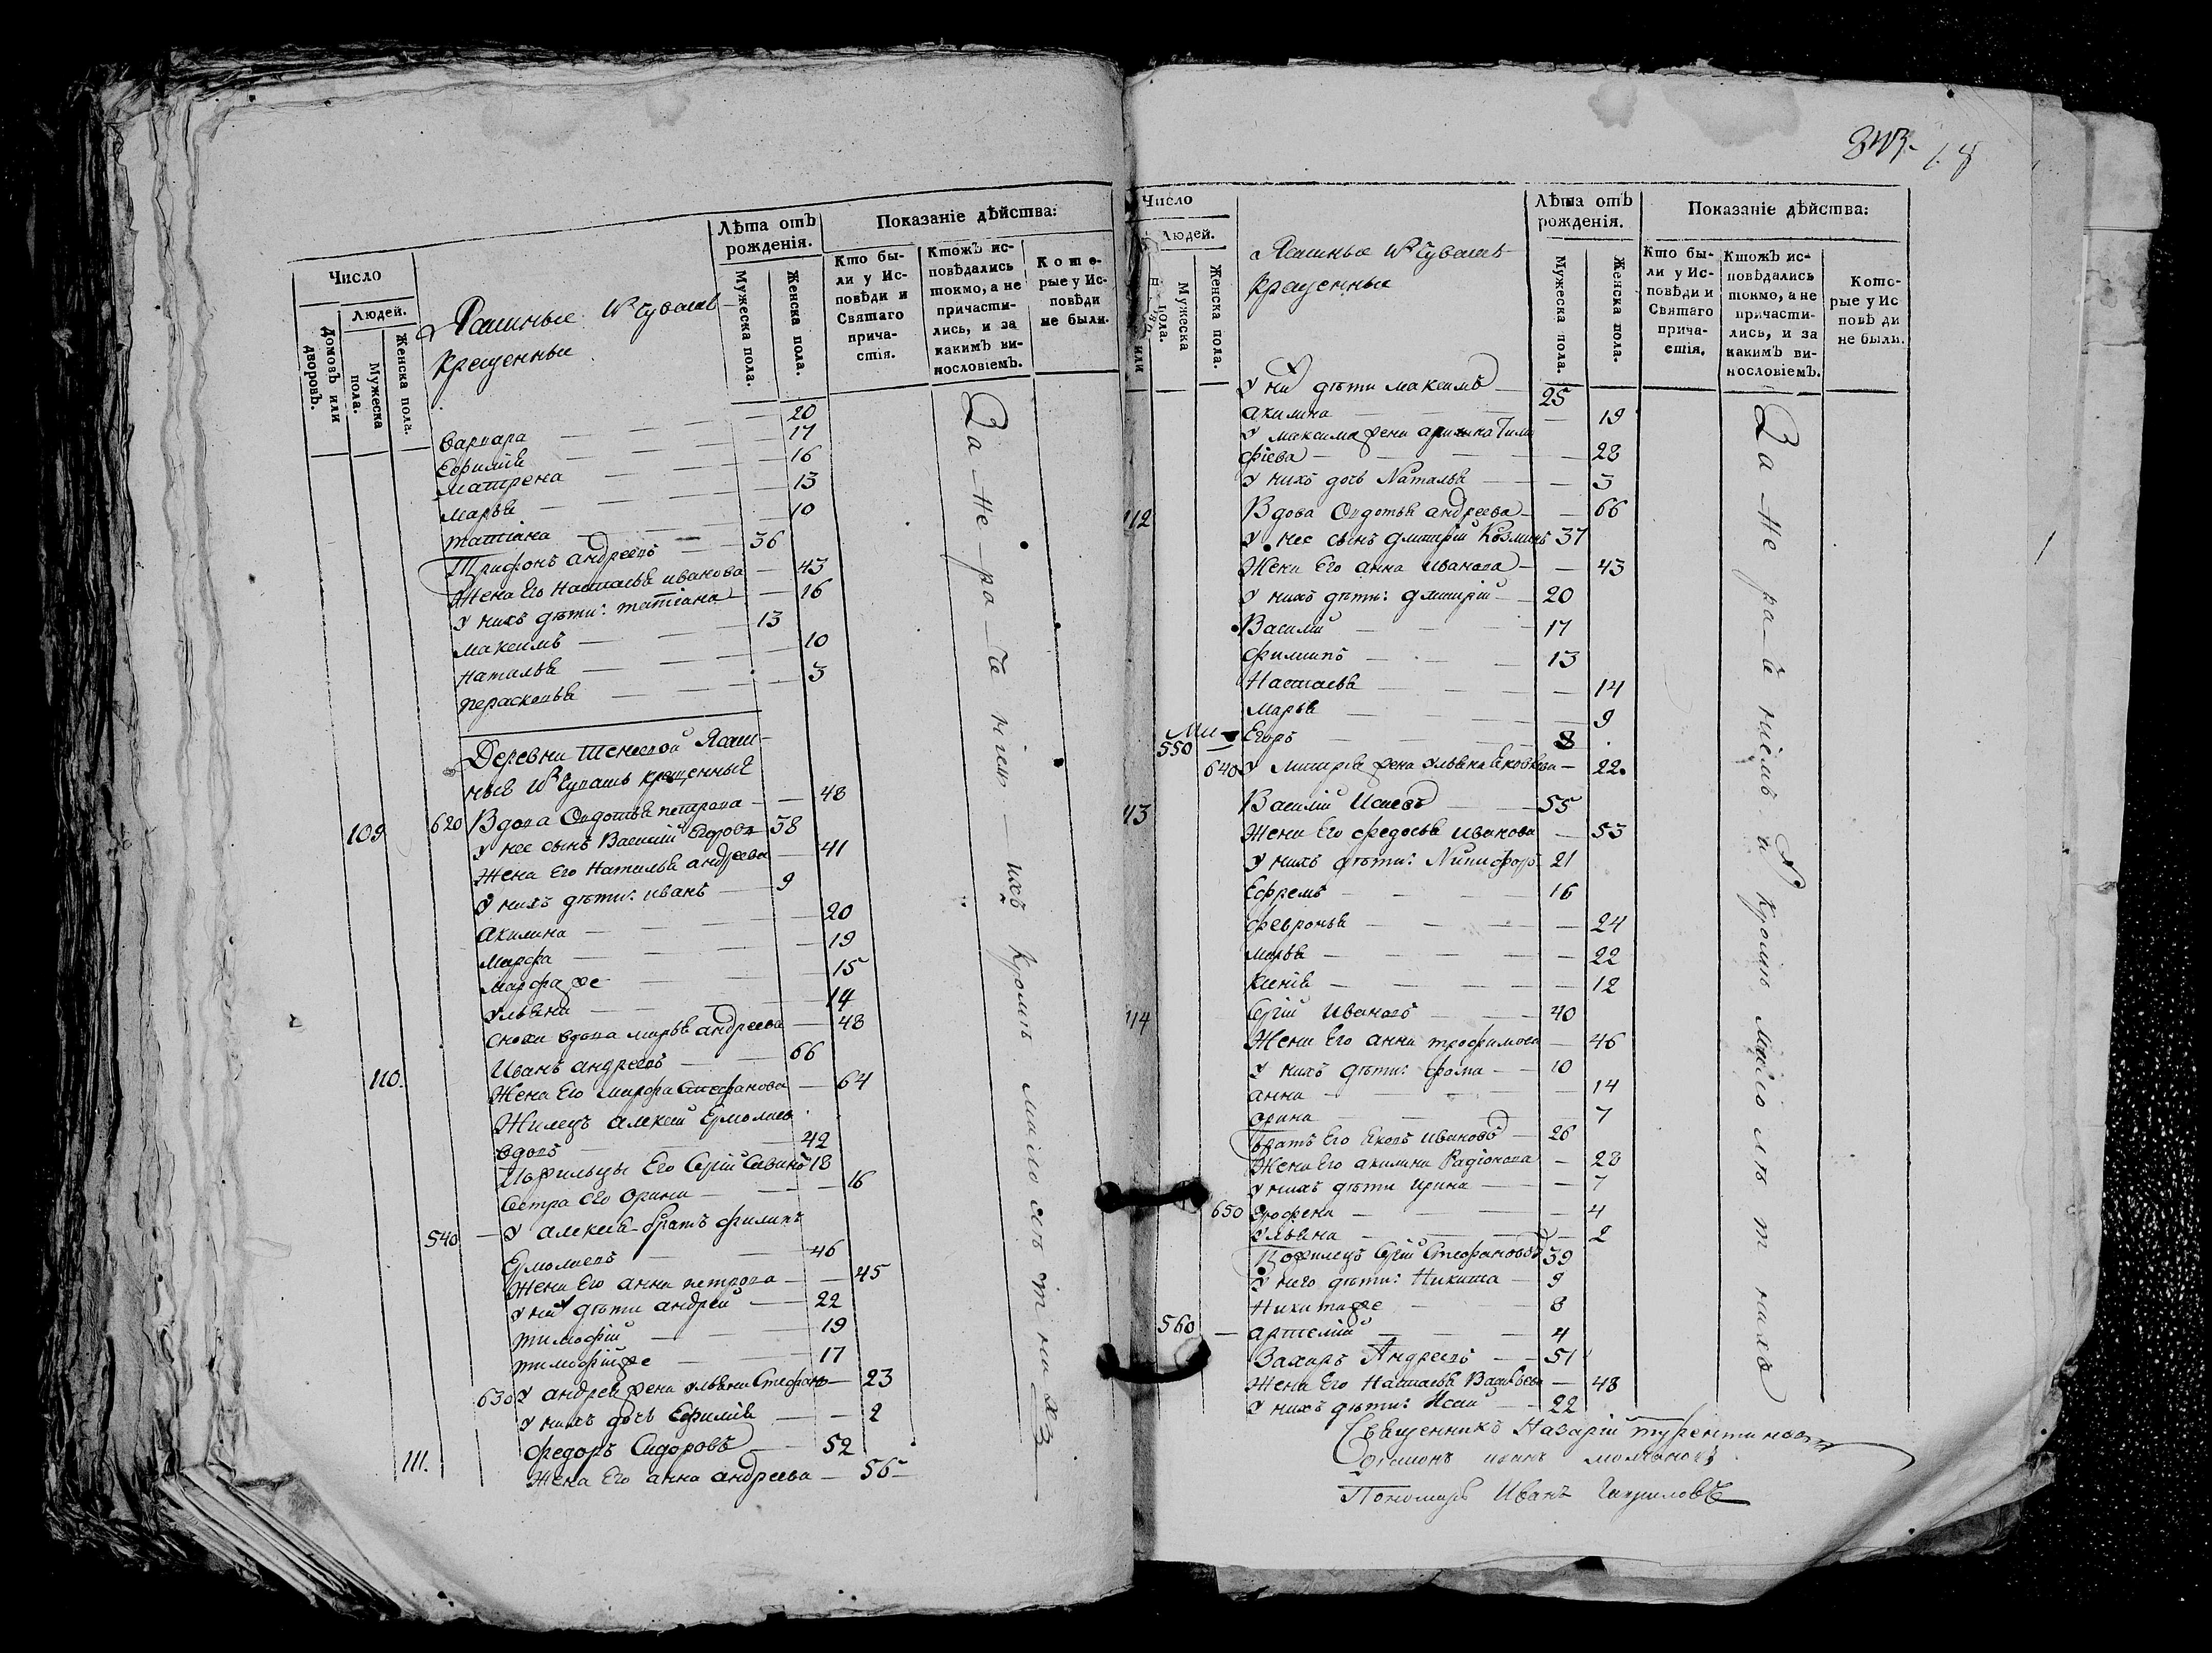 Число
Людей.
Домовъ или дворовъ.
Мужеска пола.
Женска пола.
Ясашные Чуваш
крещенныи
Лѣта отъ рожденія.
Мужеска пола.
Женска пола.
Показаніе дѣйства:
Кто были у Исповѣди и Святаго причастія.
Ктожъ исповѣдались токмо, а не причастились, и за какимъ винословіемъ.
Которые у Исповѣди не были.
Варвара — 20
Ефимія — 17
Матрена — 16
Марья — 13
Татіана — 10
Трифонъ Андреевъ — 36
Жена Его Настасья Иванова — 43
У нихъ дѣти: татіана — 16
Максимъ — 13
Наталья — 10
Парасковья — 3
Деревни Ясаш-
ныя Чувашъ крещенныя
109 620 Вдова Овдотья петрова — 48
У нее сынъ Василий Егоровъ 38
Жена Его Наталья андреева — 41
У нихъ дѣти: иванъ — 9
Акилина — 20
Марфа — 19
Марфа же — 15
Ульяна — 14
сноха вдова марья андреева — 48
110. Иванъ андреевъ — 66
Жена Его марфа Стефанова — 64
Жилецъ алексей Ермолаев
вдовъ — 42
Сергій 18
Сестра его Орина — 16
540 — У алексея братъ филипъ
Ермолаевъ — 46
Жена Его анна петрова — 45
У них дѣти андрей — 22
тимофій — 19
тимофій же — 17
630 У андрея жена ульяна Стефано — 23
У нихъ дочь Ефимія — 2
111. Федоръ Сидоровъ — 52
Жена Его анна андреева — 56
За — не — ра — че ніемъ — ихъ кромѣ мало лѣтнихъ
18
Число
Людей.
Мужеска пола.
Женска пола.
Ясашные Чувашъ
крещенныи
Лѣта отъ рожденія.
Мужеска пола.
Женска пола.
Показаніе дѣйства:
Кто были у Исповѣди и Святаго причастія.
Ктожъ исповѣдались токмо, а не причастились, и за какимъ винословіемъ.
Которые у Исповѣди не были.
У них дѣти максимъ — 25
Акилина — 19
У максима жена Тимо
фіева — 28
У нихъ дочь Наталья — 3
112 Вдова Овдотья андреева — 66
У нее сынъ дмитрій Козминъ 37
Жена Его анна иванова — 43
У нихъ дѣти: дмитрій — 20
Василій — 17
филиппъ — 13
Настасья — 14
Марья — 9
550 — Егоръ — 8
640 У митрія жена ульяна яковлева — 22
113 Василій Исаевъ — 55
Жена Его федосья иванова — 53
У нихъ дѣти: Никифоръ 21
Ефремъ — 16
февронья — 24
марья — 22
ксенія — 12
114 Сергій Ивановъ — 40
Жена Его анна трофимова — 46
У нихъ дѣти: фома — 10
анна — 14
орина — 7
братъ Его яковъ ивановъ — 26
Жена Его акилина Радіонова — 28
У нихъ дѣти ирина — 7
650 — 4
Ульяна — 2
Сергій Стефановъ 39
У него дѣти: Никита — 9
Никита же — 8
560 — артемій — 4
Захаръ Андреевъ — 51
Жена Его Настасья Васильева — 48
У нихъ дѣти: Исай — 22
За — не ра — че ніемъ кромѣ мало лѣт нихъ
Священникъ Назарій
Діаконъ иванъ
Пономарь Иванъ Гавриловъ